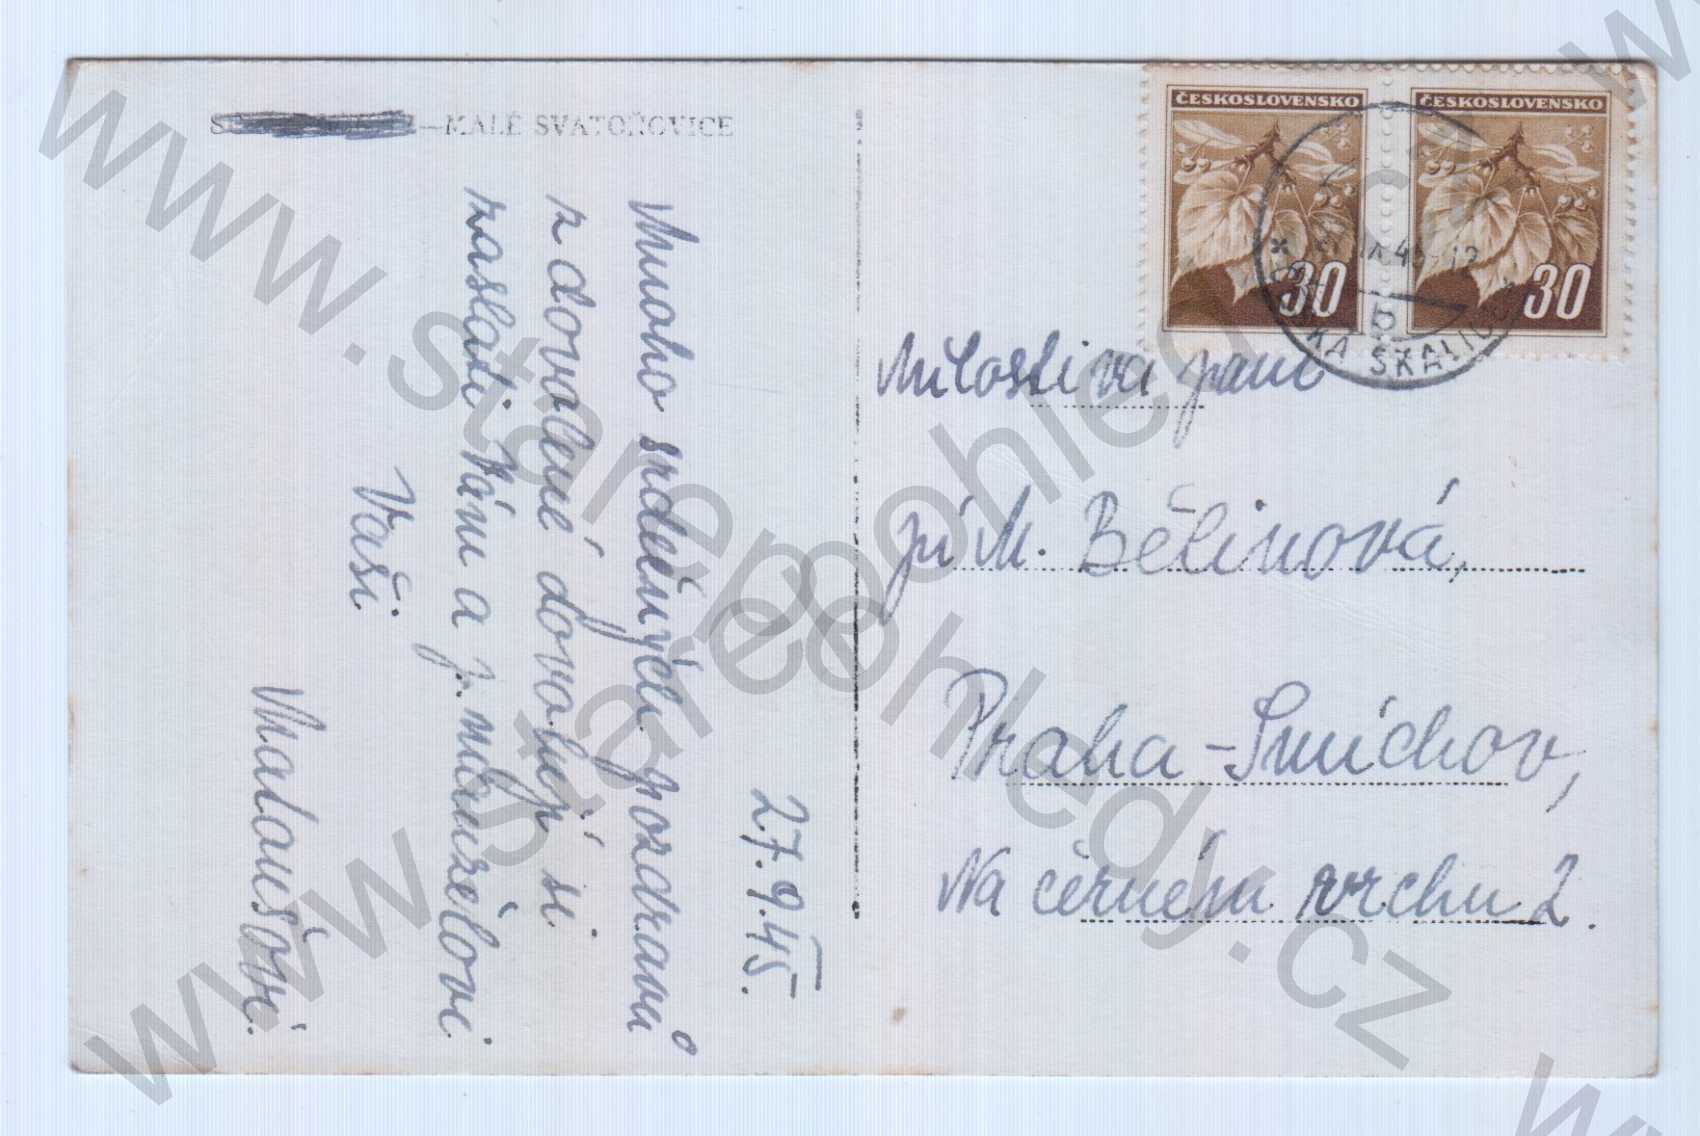 — MALÉ SVATOŇOVICE
27. 9. 45.
Mnoho srdečných pozdravů
z dovolené dovolují si
zaslati Vám a p. manželovi
Vaši
ČESKOSLOVENSKO
30
ČESKOSLOVENSKO
30
KA SKALIC
Milostivá paní
pí M. Bělinová,
Praha-Smíchov,
Na černém vrchu 2.
www.starepohledy.cz
www.starepohledy.cz